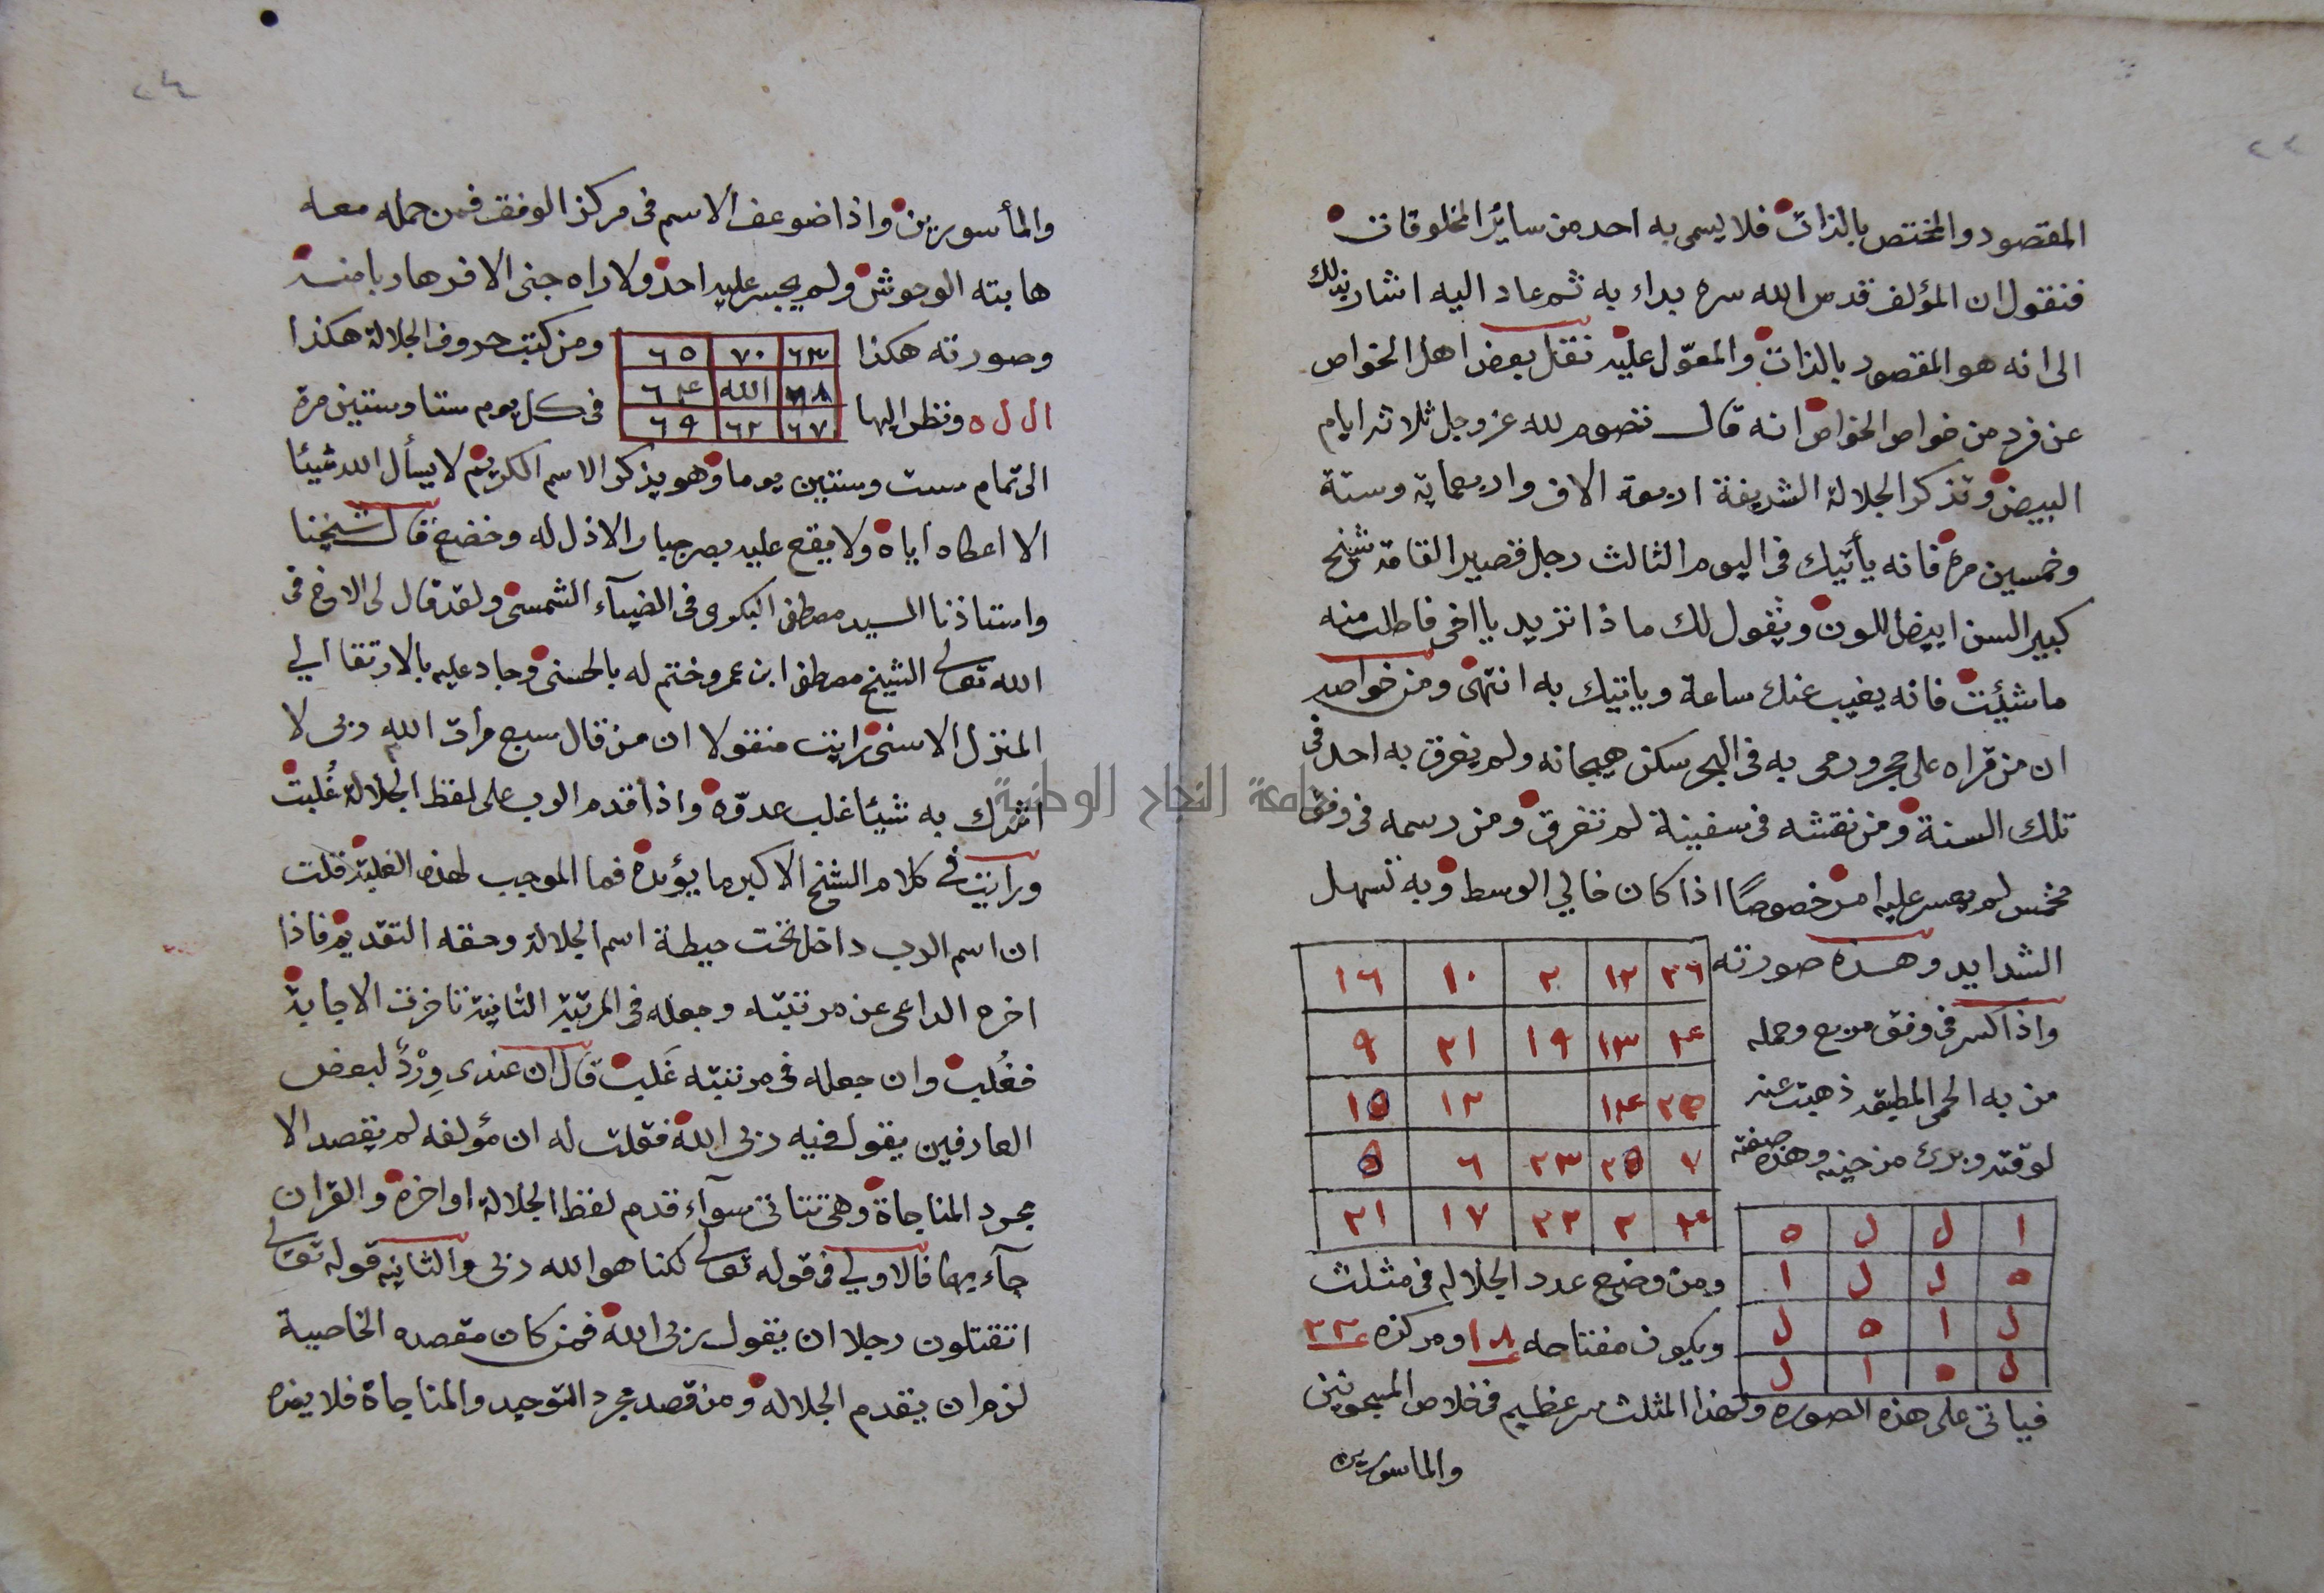 ٢٣
المقصود والمختص بالذات فلا يسمى به احد من ساير المخلوقات
فنقول ان المؤلف قدس الله سره بداء به ثم عاد اليه اشار بذلك
الى انه هو المقصود بالذات والمعوّل عليه نقل بعض اهل الخواص
عن فرد من خواص الخواص انه قال تصوم لله عز وجل ثلاثة ايام
البيض وتذكر الجلالة الشريفة اربعة الاف واربعماية وستة
وخمسين مرة فانه يأتيك في اليوم الثالث رجل قصير القامة شيخ
كبير السن ابيض اللون ويقول لك ماذا تريد يا اخي فاطلب منه
ما شيئت فانه يغيب عنك ساعة وياتيك به انتهى ومن خواصه
ان من قراه على حجر ورمى به في البحر سكن هيجانه ولم يغرق به احد في
تلك السنة ومن نقشه في سفينة لم تغرق ومن رسمه في وفق
مخمس لم يعسر عليه امر خصوصًا اذا كان خالي الوسط وبه تسهل
الشدايد وهذه صورته
٢٦ ١٢ ٢ ١٠ ١٦
١٣ ١٩ ٢١ ٩
١٤ ١٢ ١٥
٧ ٢٥ ٢٣ ٦ ٥
٢٢ ١٧ ٢١
واذا كسر في وفق مربع وحمله
من به الحمى المطبقة ذهبت عنه
لوقته وبرئ من حينه وهذه صفته
ا ل ل ه
ه ل ل ا
ل ا ه ل
ل ه ا ل
ومن وضع عدد الجلاله في مثلث
ويكون مفتاحه ومركزه ٢٢
فياتى على هذه الصوره ولهذا المثلث سر عظيم في خلاص المسجونين
والماسورين
٢٤
والمأسورين واذا ضوعف الاسم في مركز الوفق فمن حمله معه
هابته الوحوش ولم يجسر عليه احد ولا راه جنى الا فر هاربا منه
وصورته هكذا
٦٣ ٧٠ ٦٥
٦٨ الله ٦٤
٦٧ ٦٢ ٦٩
ومن كتب حروف الجلالة هكذا
ا ل ل ه ونظر اليها في كل يوم ستا وستين مرة
الى تمام ست وستين يوما وهو يذكر الاسم الكريم لا يسأل الله شيئا
الا اعطاه اياه ولا يقع عليه بصر جبار الا ذل له وخضع قال شيخنا
واستاذنا السيد مصطفى البكري في الضياء الشمسى ولقد قال لى الاخ في
الله تعالى الشيخ مصطفى ابن عمر وختم له بالحسنى وجاد عليه بالارتقا الي
المنزل الاسنى رايت منقولا ان من قال سبع مرات الله ربى لا
اشرك به شيئا غلب عدوّه واذا قدم الرب على لفظ الجلالة غُلبت
ورايت في كلام الشيخ الاكبر ما يؤيده فما الموجب لهذه الغلبة قلت
ان اسم الرب داخل تحت حيطة اسم الجلالة وحقه التقديم فاذا
اخره الداعي عن مرتبته وجعله في المرتبة الثانية تاخرت الاجابة
فغُلب وان جعله في مرتبته غَلب قال ان عندى وِرْدً لبعض
العارفين يقول فيه ربى الله فقلت له ان مؤلفه لم يقصد الا
مجرد المناجاة وهى تتاتى سوآء قدم لفظ الجلالة او اخره والقران
جآء بهما فالاولي في قوله تعالى لكنا هو الله ربى والثانيه قوله تعالى
اتقتلون رجلا ان يقول ربى الله فمن كان مقصده الخاصية
لزم ان يقدم الجلاله ومن قصد مجرد التوحيد والمناجاة فلا يضره
جامعة النجاح الوطنية